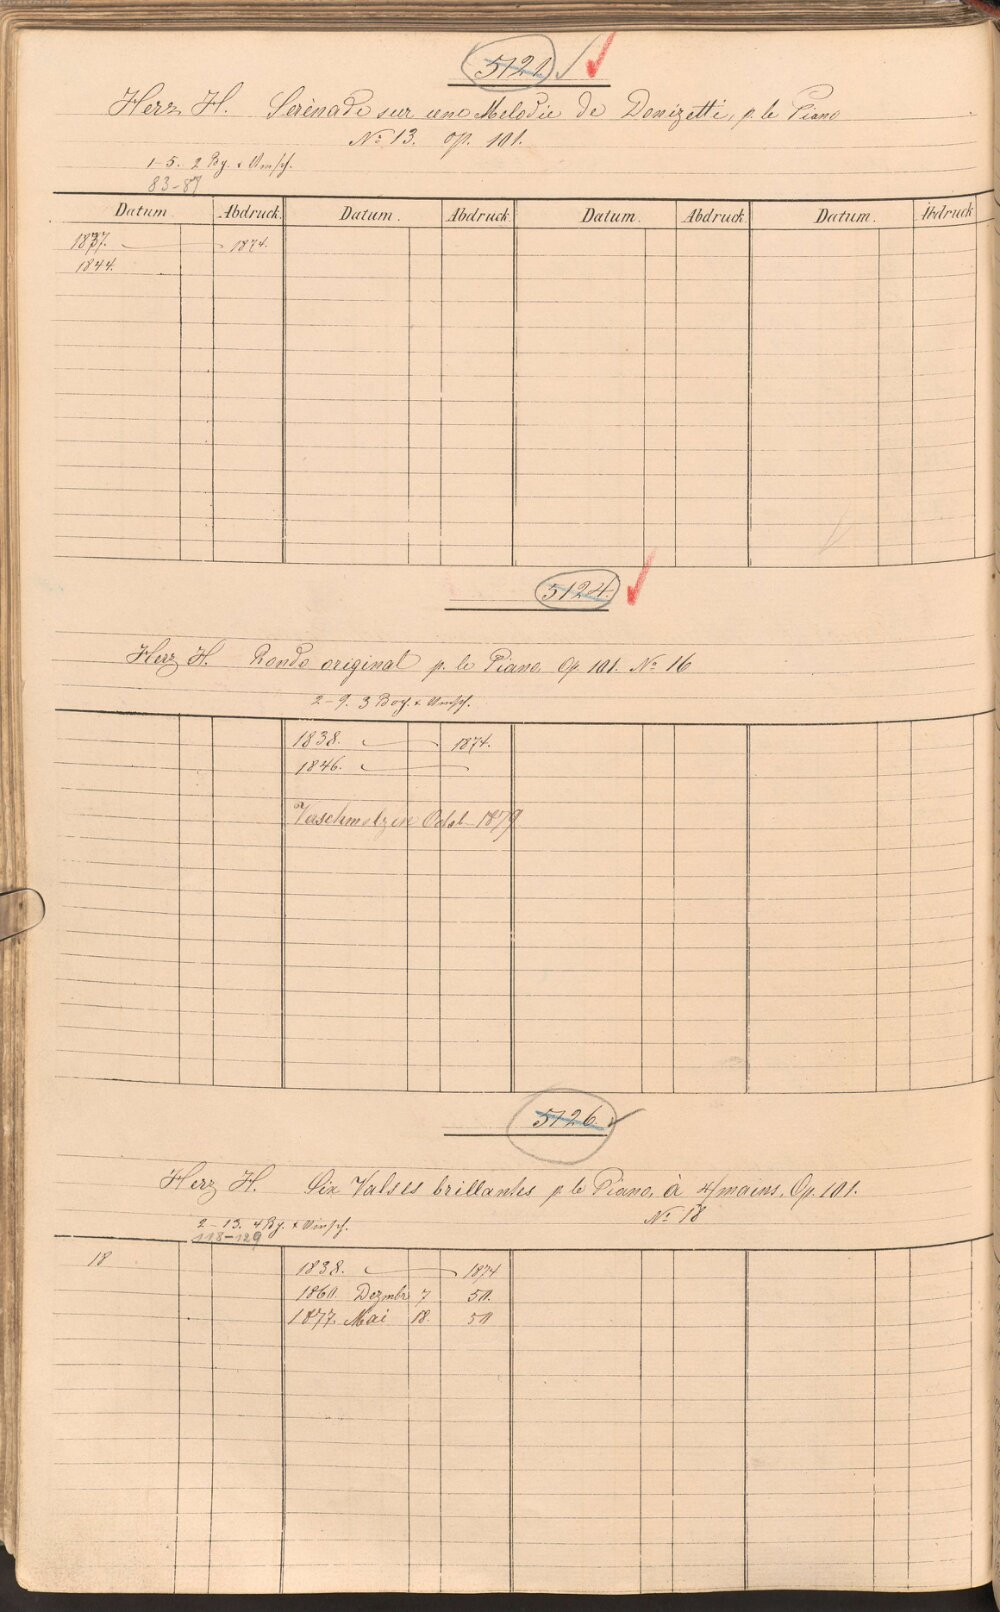 5121
Herz H. Serénade sur une Melodie de Donizetti, p. le Piano
No 13. op. 101.
1–5. 2 Bg. + Umsch.
83–87
Datum. Abdruck. Datum. Abdruck Datum. Abdruck Datum. Abdruck
1837. 1874.
1844.
5124.
Herz H. Rondo original p. le Piano Op 101. No 16
2–9. 3 Bog. + Umsch.
1838. 1874.
1846.
Vaschmolzen Octob 1879
5126
Herz H. Six Valses brillantes p. le Piano, à 4/mains. Op. 101.
No 18
2–13. 4 Bg. + Umsch.
118–129
18 1838. 1874
1860 Dezmbr 7 50.
1877. Mai 18. 50